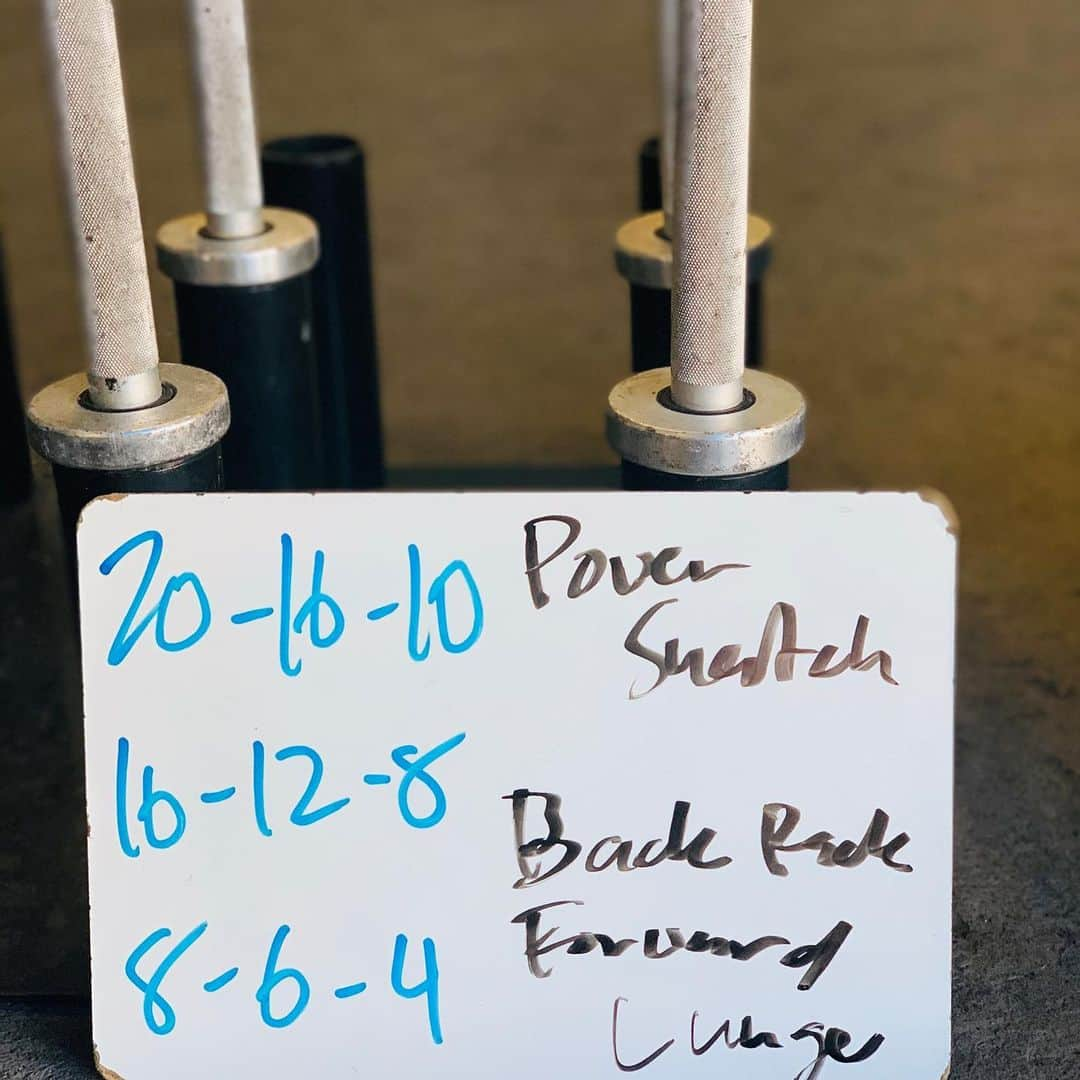 20-16-10 Power
Snatch
16-12-8
Back Rack
8-6-4 Forward
Lunge